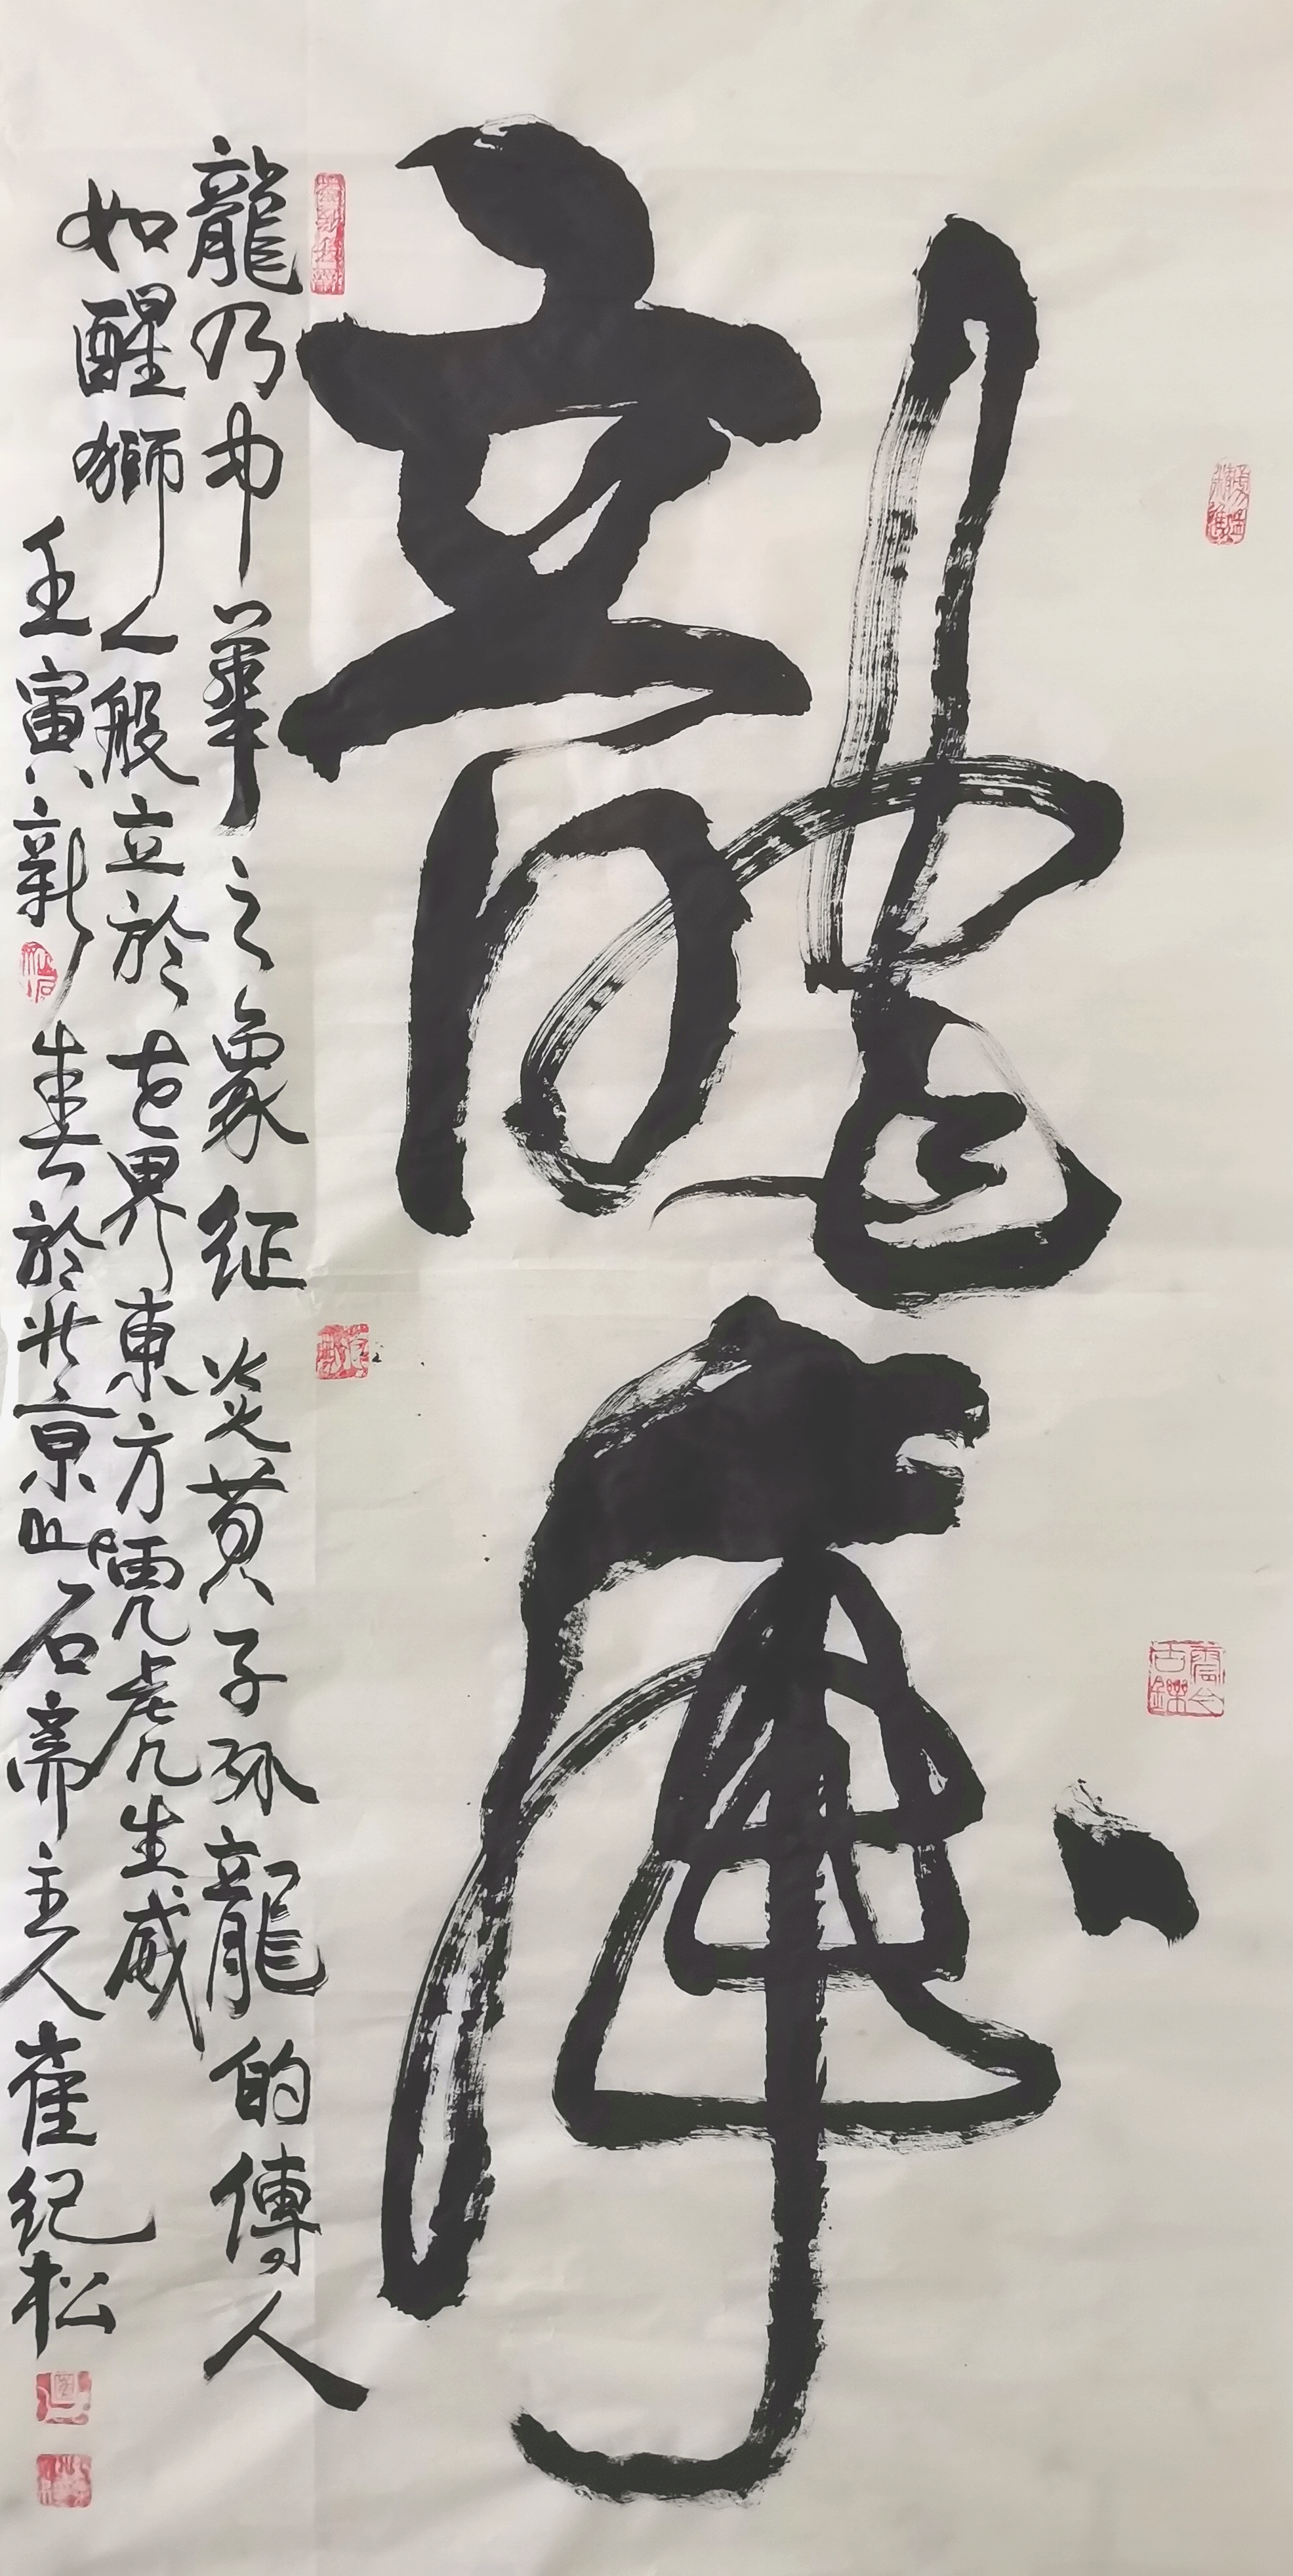 龍虎
龍乃中華之象征炎黄子孙龍的傳人
如醒獅一般立於世界東方虎虎生威
壬寅新春书於北京石斋主人崔纪松